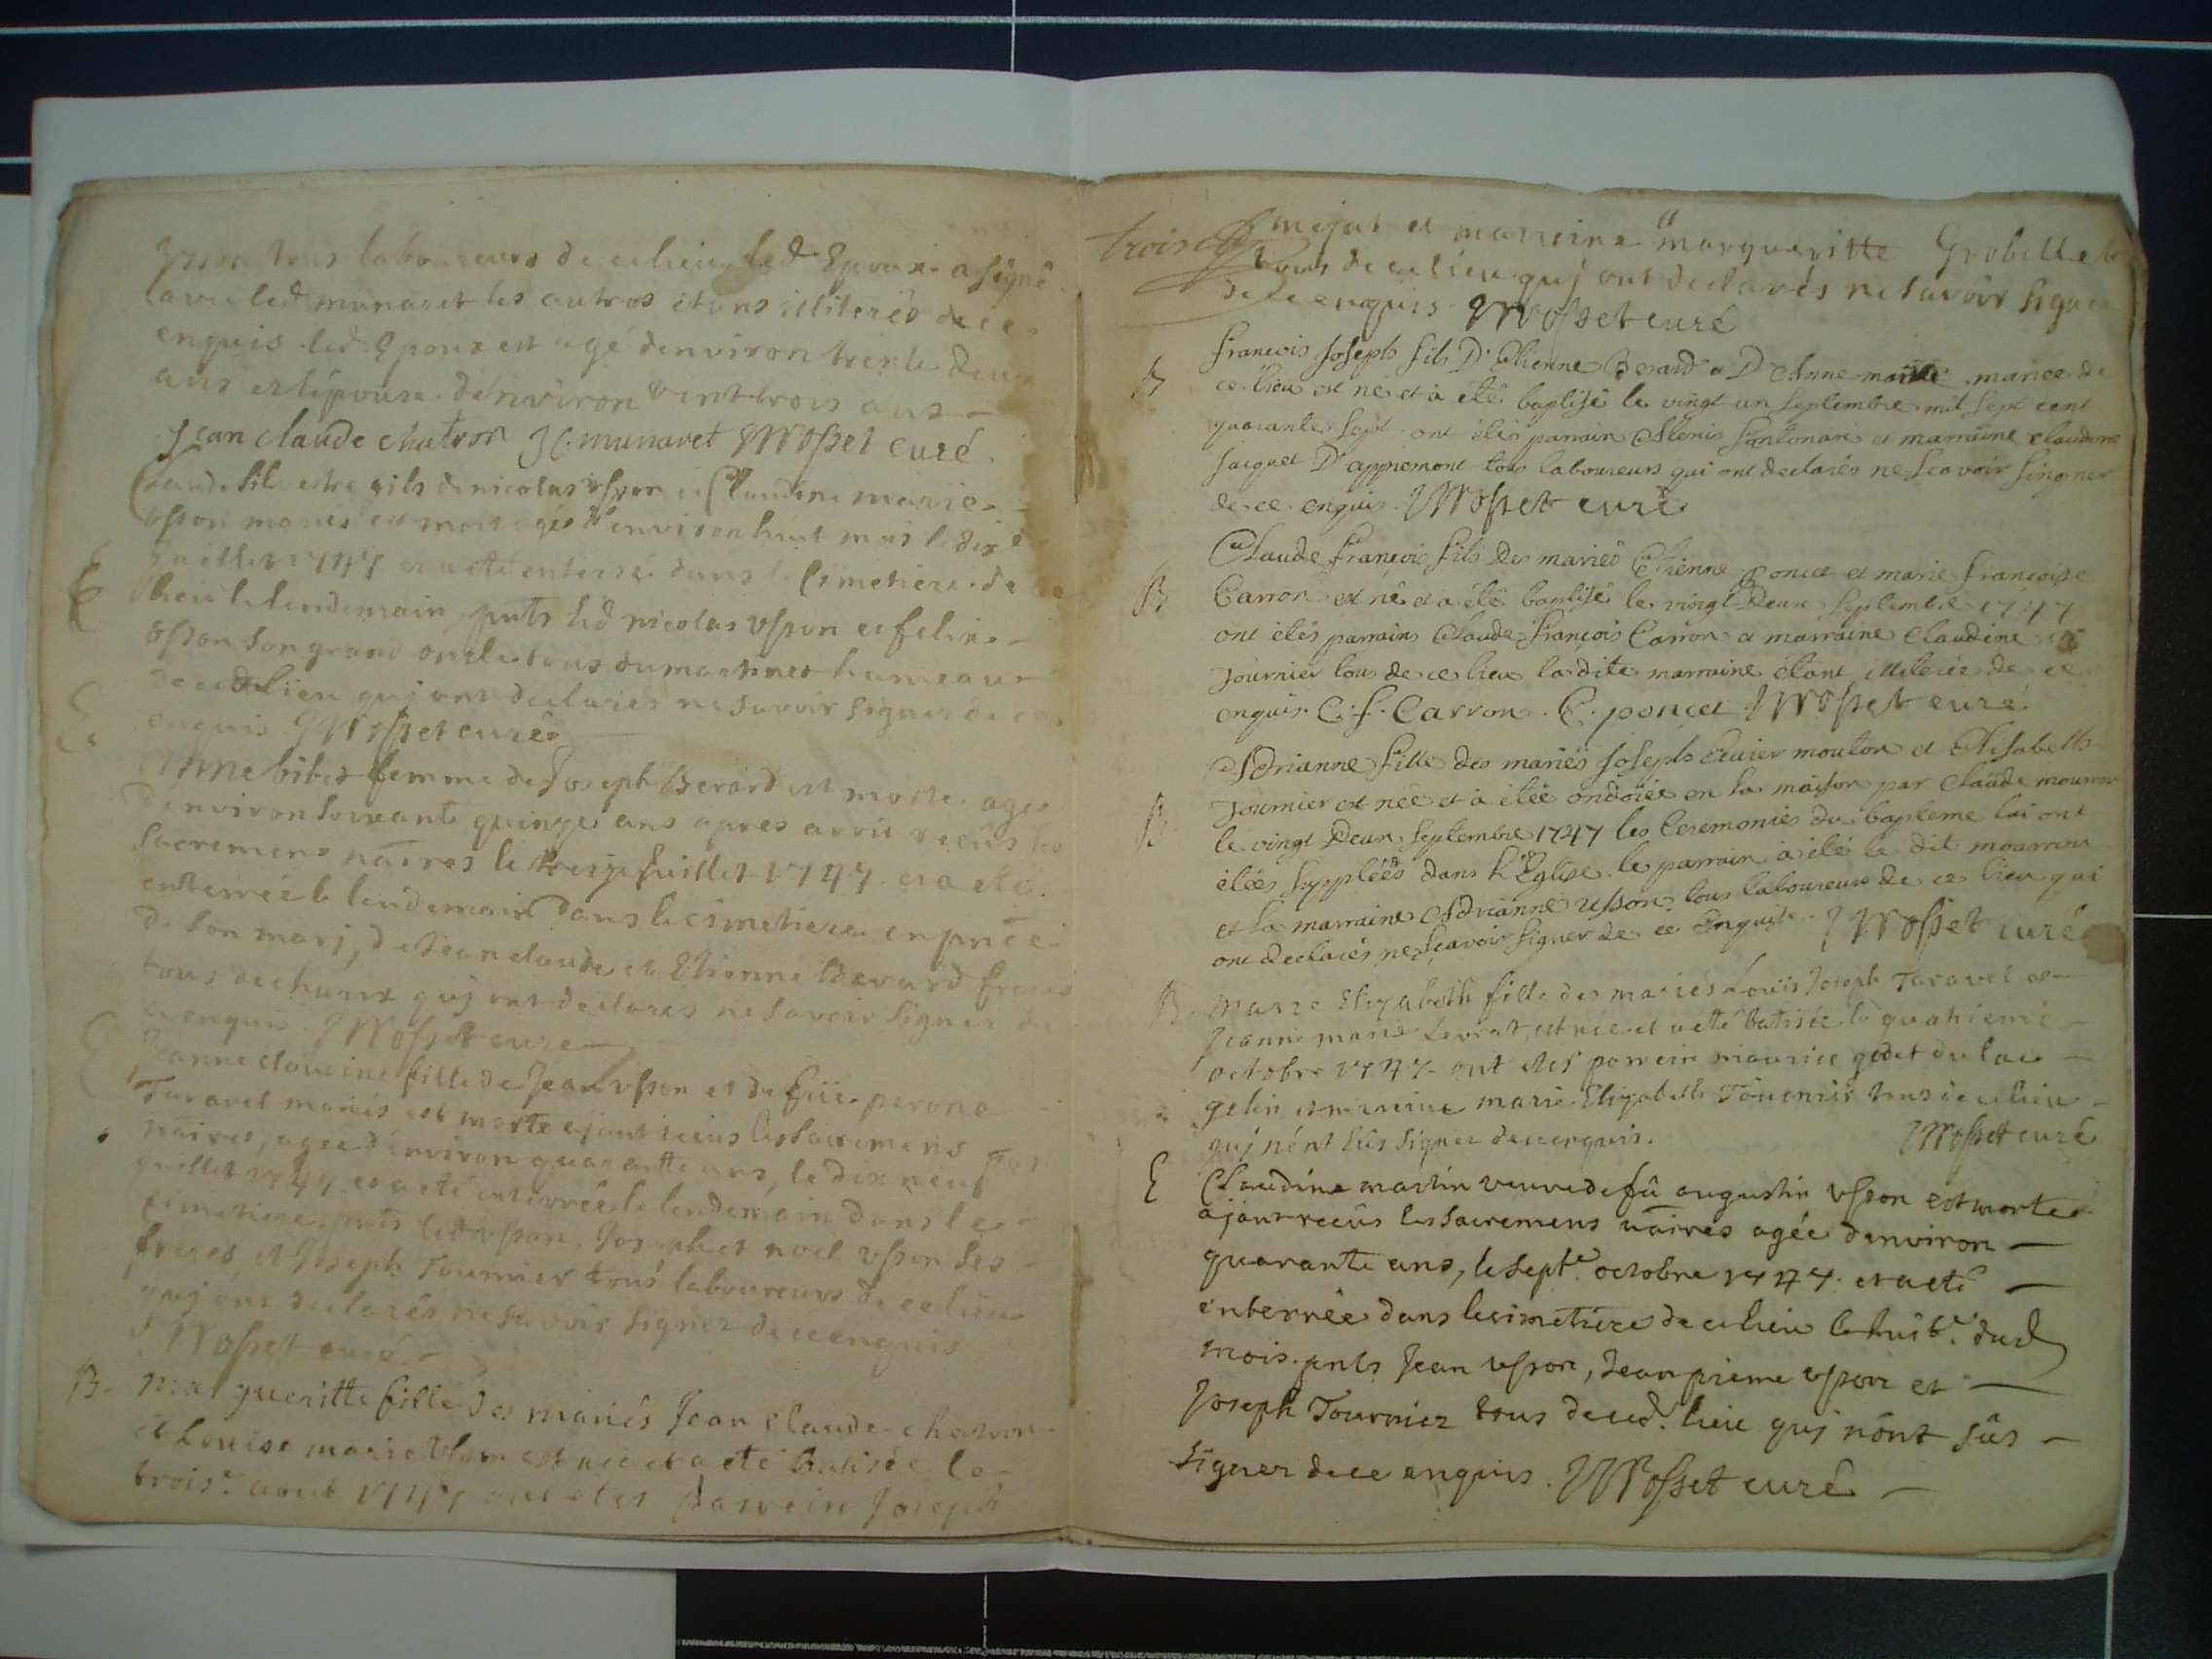 tous laboureurs de ce lieu led. Epoux a signé
avec led munaret les autres étans illiterés de ce
enquis. led. Epoux est agé denviron trente deux
ans et lépouse dénviron vint trois ans —
Jean claude chatron JC. munaret JMosset curé.
fils de nicolas Vsson et Claudine marie
Vsson mariés est mort agés denviron huit mois le dixe
Juillet 1747 et a eté enterré dans le Cimetiere de ce
E lieu le lendemain, pnts led nicolas Vsson et felix
Vsson son grand oncle tous du martinet hameau
de lieu quj ont declarés ne savoir signer de ce
E enquis. JMosset curé
Anne bibet femme de Joseph Berard est morte agée
denviron soixante quinze ans apres avoir reçûs les
sacremens nāires le treize Juillet 1747. et a eté
enterrée le lendemain dans le cimetiere en pnce
de son marj, de Jean claude et Etienne Berard freres
tous de quj ont declarés ne savoir signer de
ce enquis. JMosset curé
E Jeanne claudine fille de Jean Vsson et de perone
Taravel mariés est morte ajant reçus les sacremens
nāires, agée dénviron quarante ans, le dix neuf
Juillet 1747. et a eté enterrée le lendemain dans le
cimetiere, pnts led Vsson, Joseph et noel Vsson ses
freres, et Joseph Tournier tous laboureurs de ce lieu
quj ont declarés ne savoir signer de ce enquis
JMosset curé —
B. margueritte fille des mariés Jean claude chatron
et Louise marie Vsson est née et a eté batisée le
troise. aout 1747 ont etés parrein Joseph
trois mejat et marreine margueritte Grobellet
tous de ce lieu quj ont declarés ne savoir signer
de ce enquis. JMosset curé
françois Joseph fils D'Etienne Berard et D'Anne mariée de
B ce lieu est né et à été baptisé le vingt un septembre mil sept cent
quarante sept. ont étés parrain et marraine claudine
Jacquet D'appremont tous laboureurs qui ont declarés ne sçavoir singner
de ce enquis. JMosset curé
Claude françois fils des mariés Etienne poncet et marie françoise
B Carron est né et a été baptisé le vingt deux septembre 1747
ont étés parrains Claude françois Carron et marraine Claudine
Tournier tous de ce lieu la dite marraine étant illiterée de ce
enquis. C. f. Carron. E. poncet JMosset curé
Adrianne fille des mariés Joseph mouton et Elisabeth
B Tournier est née et à étée ondoïée en la maison par claude mourron
le vingt deux septembre 1747 les Ceremonies du bapteme lui ont
étées supplées dans l'Eglise le parrain à été le dit mourron
et la marraine Adrianne Usson tous laboureurs de ce lieu qui
ont declarés ne sçavoir signer de ce enquis. JMosset curé
B. Marie Elizabeth fille des mariés Loüis Joseph Taravel et —
Jeanne marie Levrat, est née et a eté batisée le quatrieme —
octobre 1747. ont etés parrein maurice godet du lac —
gelin et marreine marie Elizabeth Tournier tous de ce lieu —
quj nónt sûs signer de ce enquis. JMosset curé
E Claudine martin veuve de fû augustin Vsson est morte
ajant reçûs les sacremens nāires agée dénviron —
quarante ans, le septe. octobre 1747. et a eté —
enterrée dans le cimetiere de ce lieu le huite. dud
mois. pnts Jean Vsson, Jean pierre Vsson et —
Joseph Tournier tous de ced. lieu quj nónt sûs —
signer de ce enquis. JMosset curé —